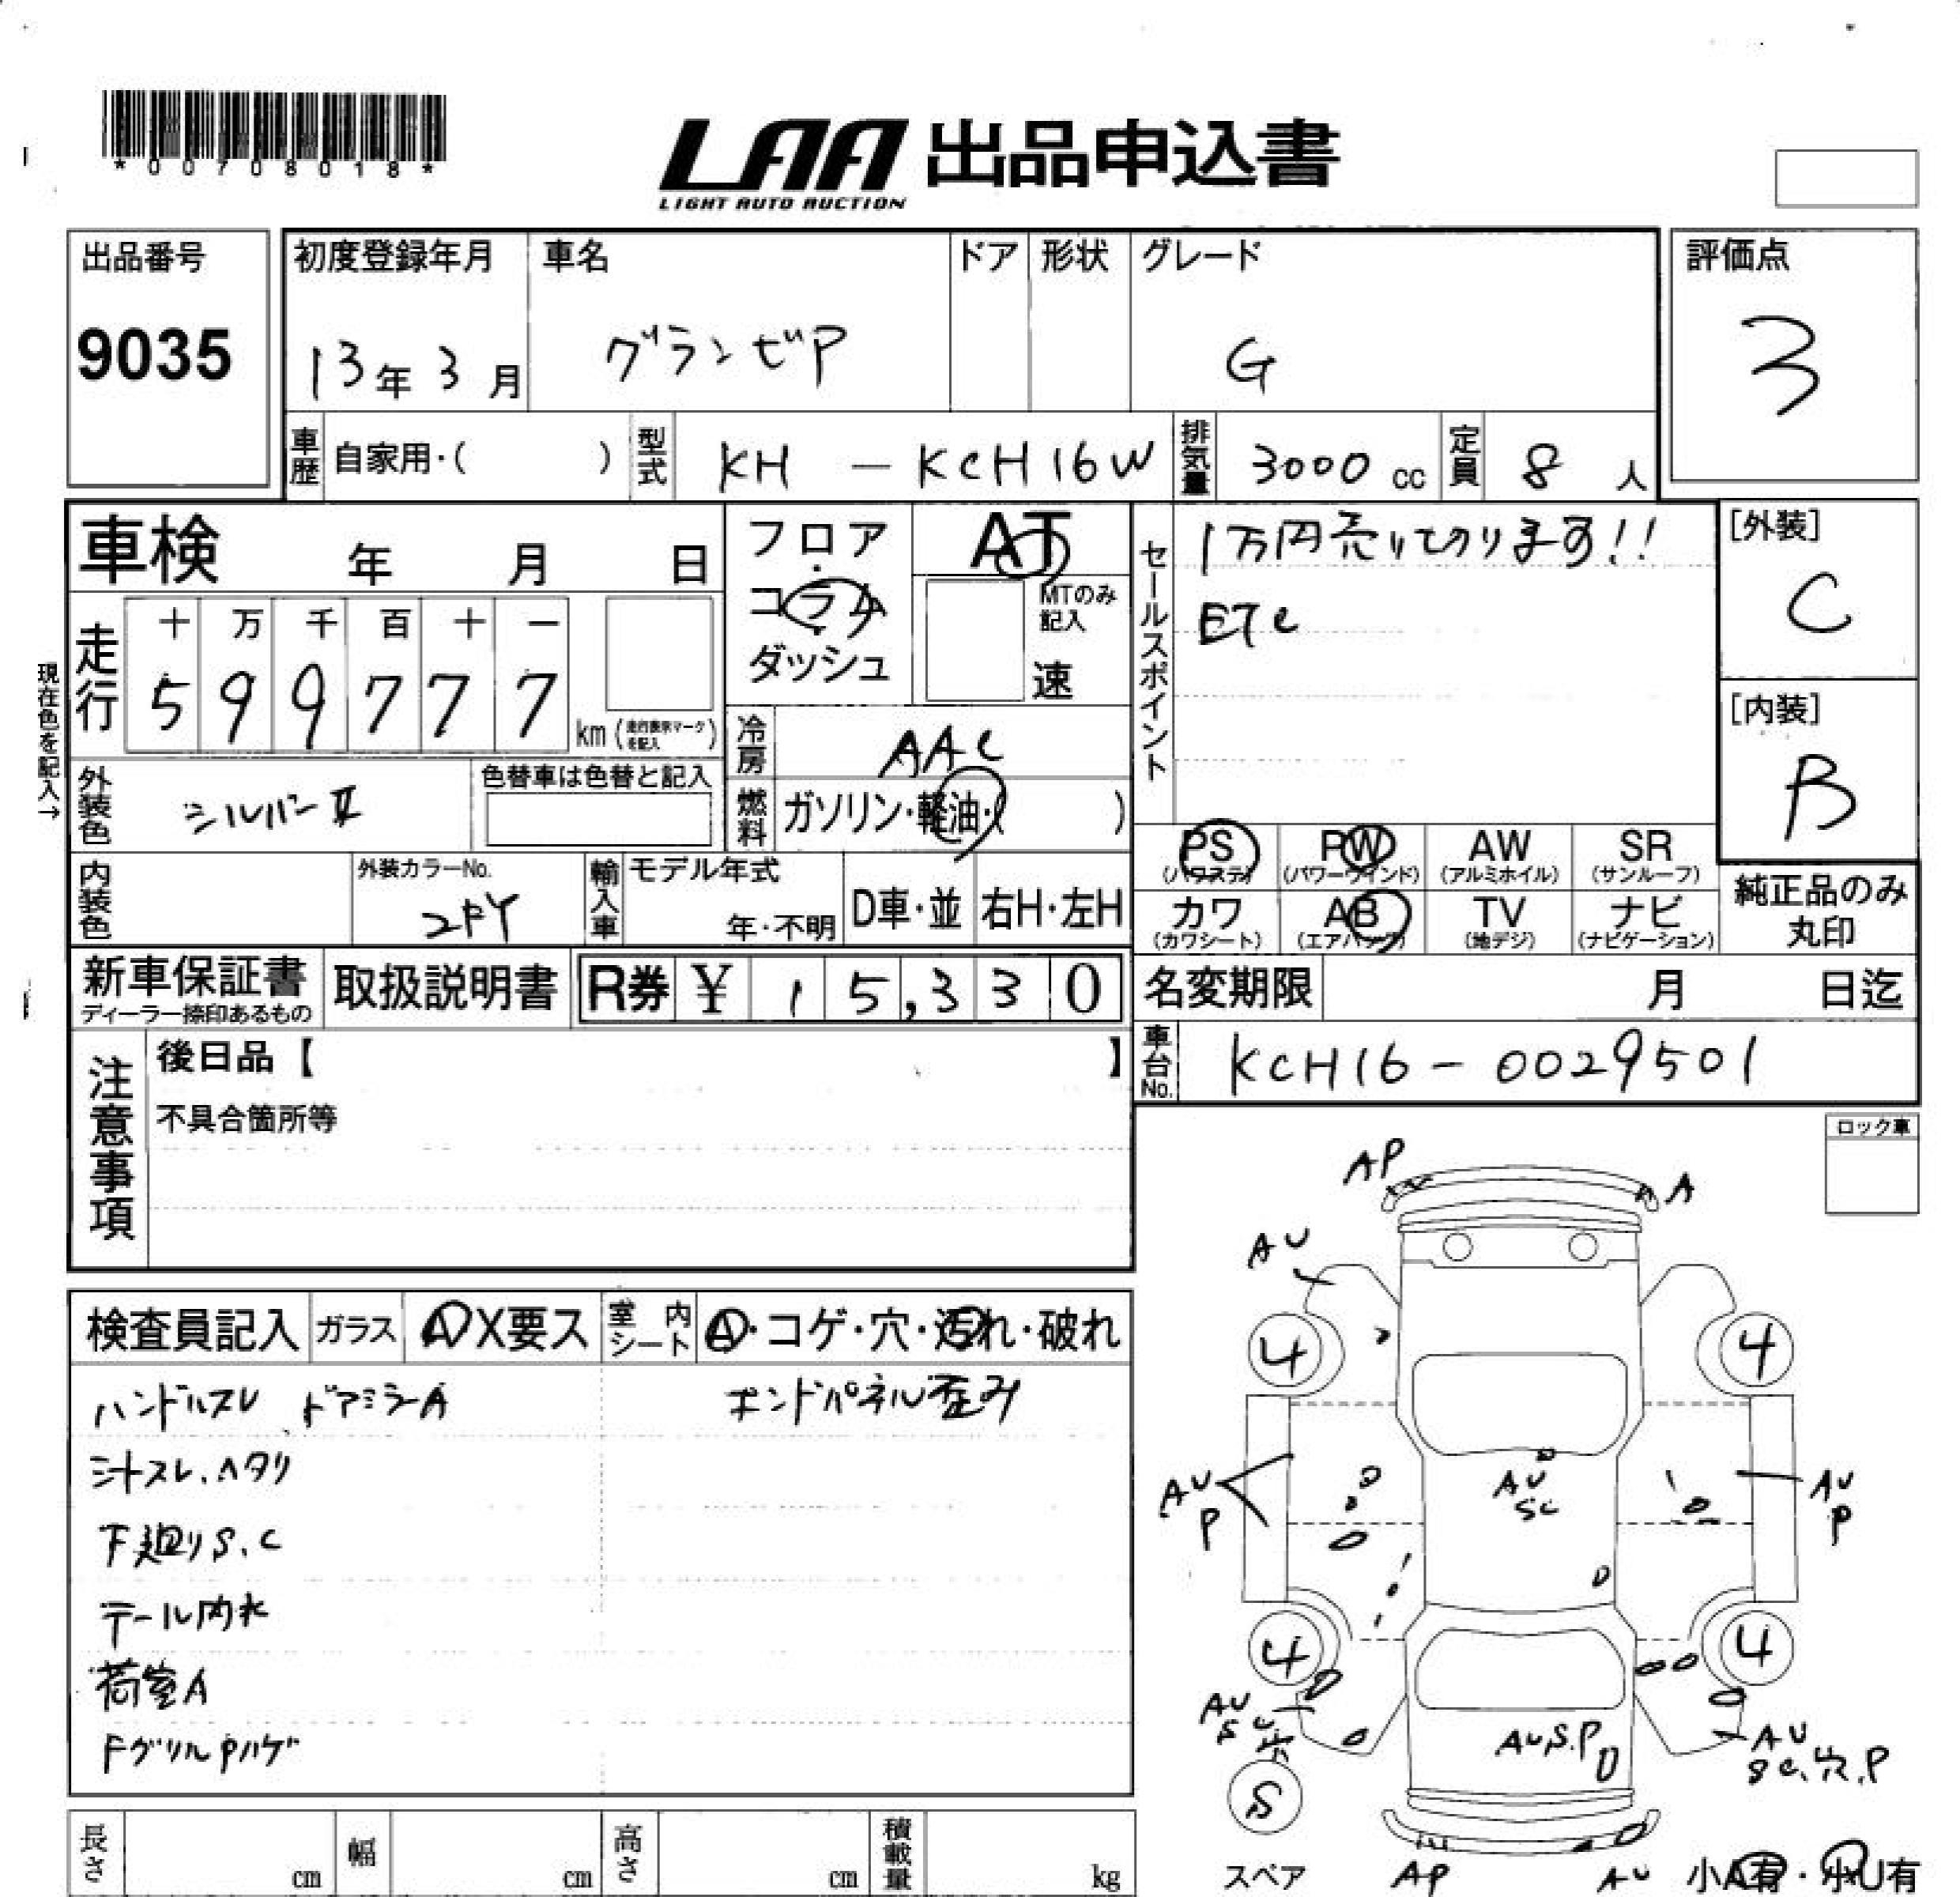 *00708018*
LAA 出品申込書
LIGHT AUTO AUCTION
出品番号 9035
初度登録年月 13年3月
車名 グランビア
ドア
形状
グレード G
評価点 3
車歴 自家用・( )
型式 KH - KCH16W
排気量 3000 cc
定員 8 人
車検 年 月 日
フロア・コラム・ダッシュ
AT
MTのみ記入
速
セールスポイント
1万円売り切ります!!
ETC
[外装] C
[内装] B
現在色を記入→
走行 十 万 千 百 十 一
5 9 9 7 7 7 km (走行表示マークを記入)
冷房 AAC
燃料 ガソリン・軽油・( )
外装色 シルバーII
色替車は色替と記入
PS (パワステ)
PW (パワーウインド)
AW (アルミホイル)
SR (サンルーフ)
カワ (カワシート)
AB (エアバッグ)
TV (地デジ)
ナビ (ナビゲーション)
純正品のみ丸印
内装色
外装カラーNo. 2FY
輸入車
モデル年式 年・不明
D車・並
右H・左H
新車保証書
ディーラー捺印あるもの
取扱説明書
R券 ¥ 15,330
名変期限 月 日迄
車台No. KCH16-0029501
注意事項
後日品【 】
不具合箇所等
ロック車
検査員記入
ガラス A X要ス
室内シート A・コゲ・穴・汚れ・破れ
ハンドルスレ、ドアミラーA
シートスレ、ヘタリ
下廻りS、C
テール内水
荷室A
FグリルPハゲ
AP
A
AU
4
4
AU
P
AU
SC
AU
P
4
4
AU
AUS.P
AU
SC、穴、P
S
スペア
AP
AU
小A有・小U有
長さ cm
幅 cm
高さ cm
積載量 kg